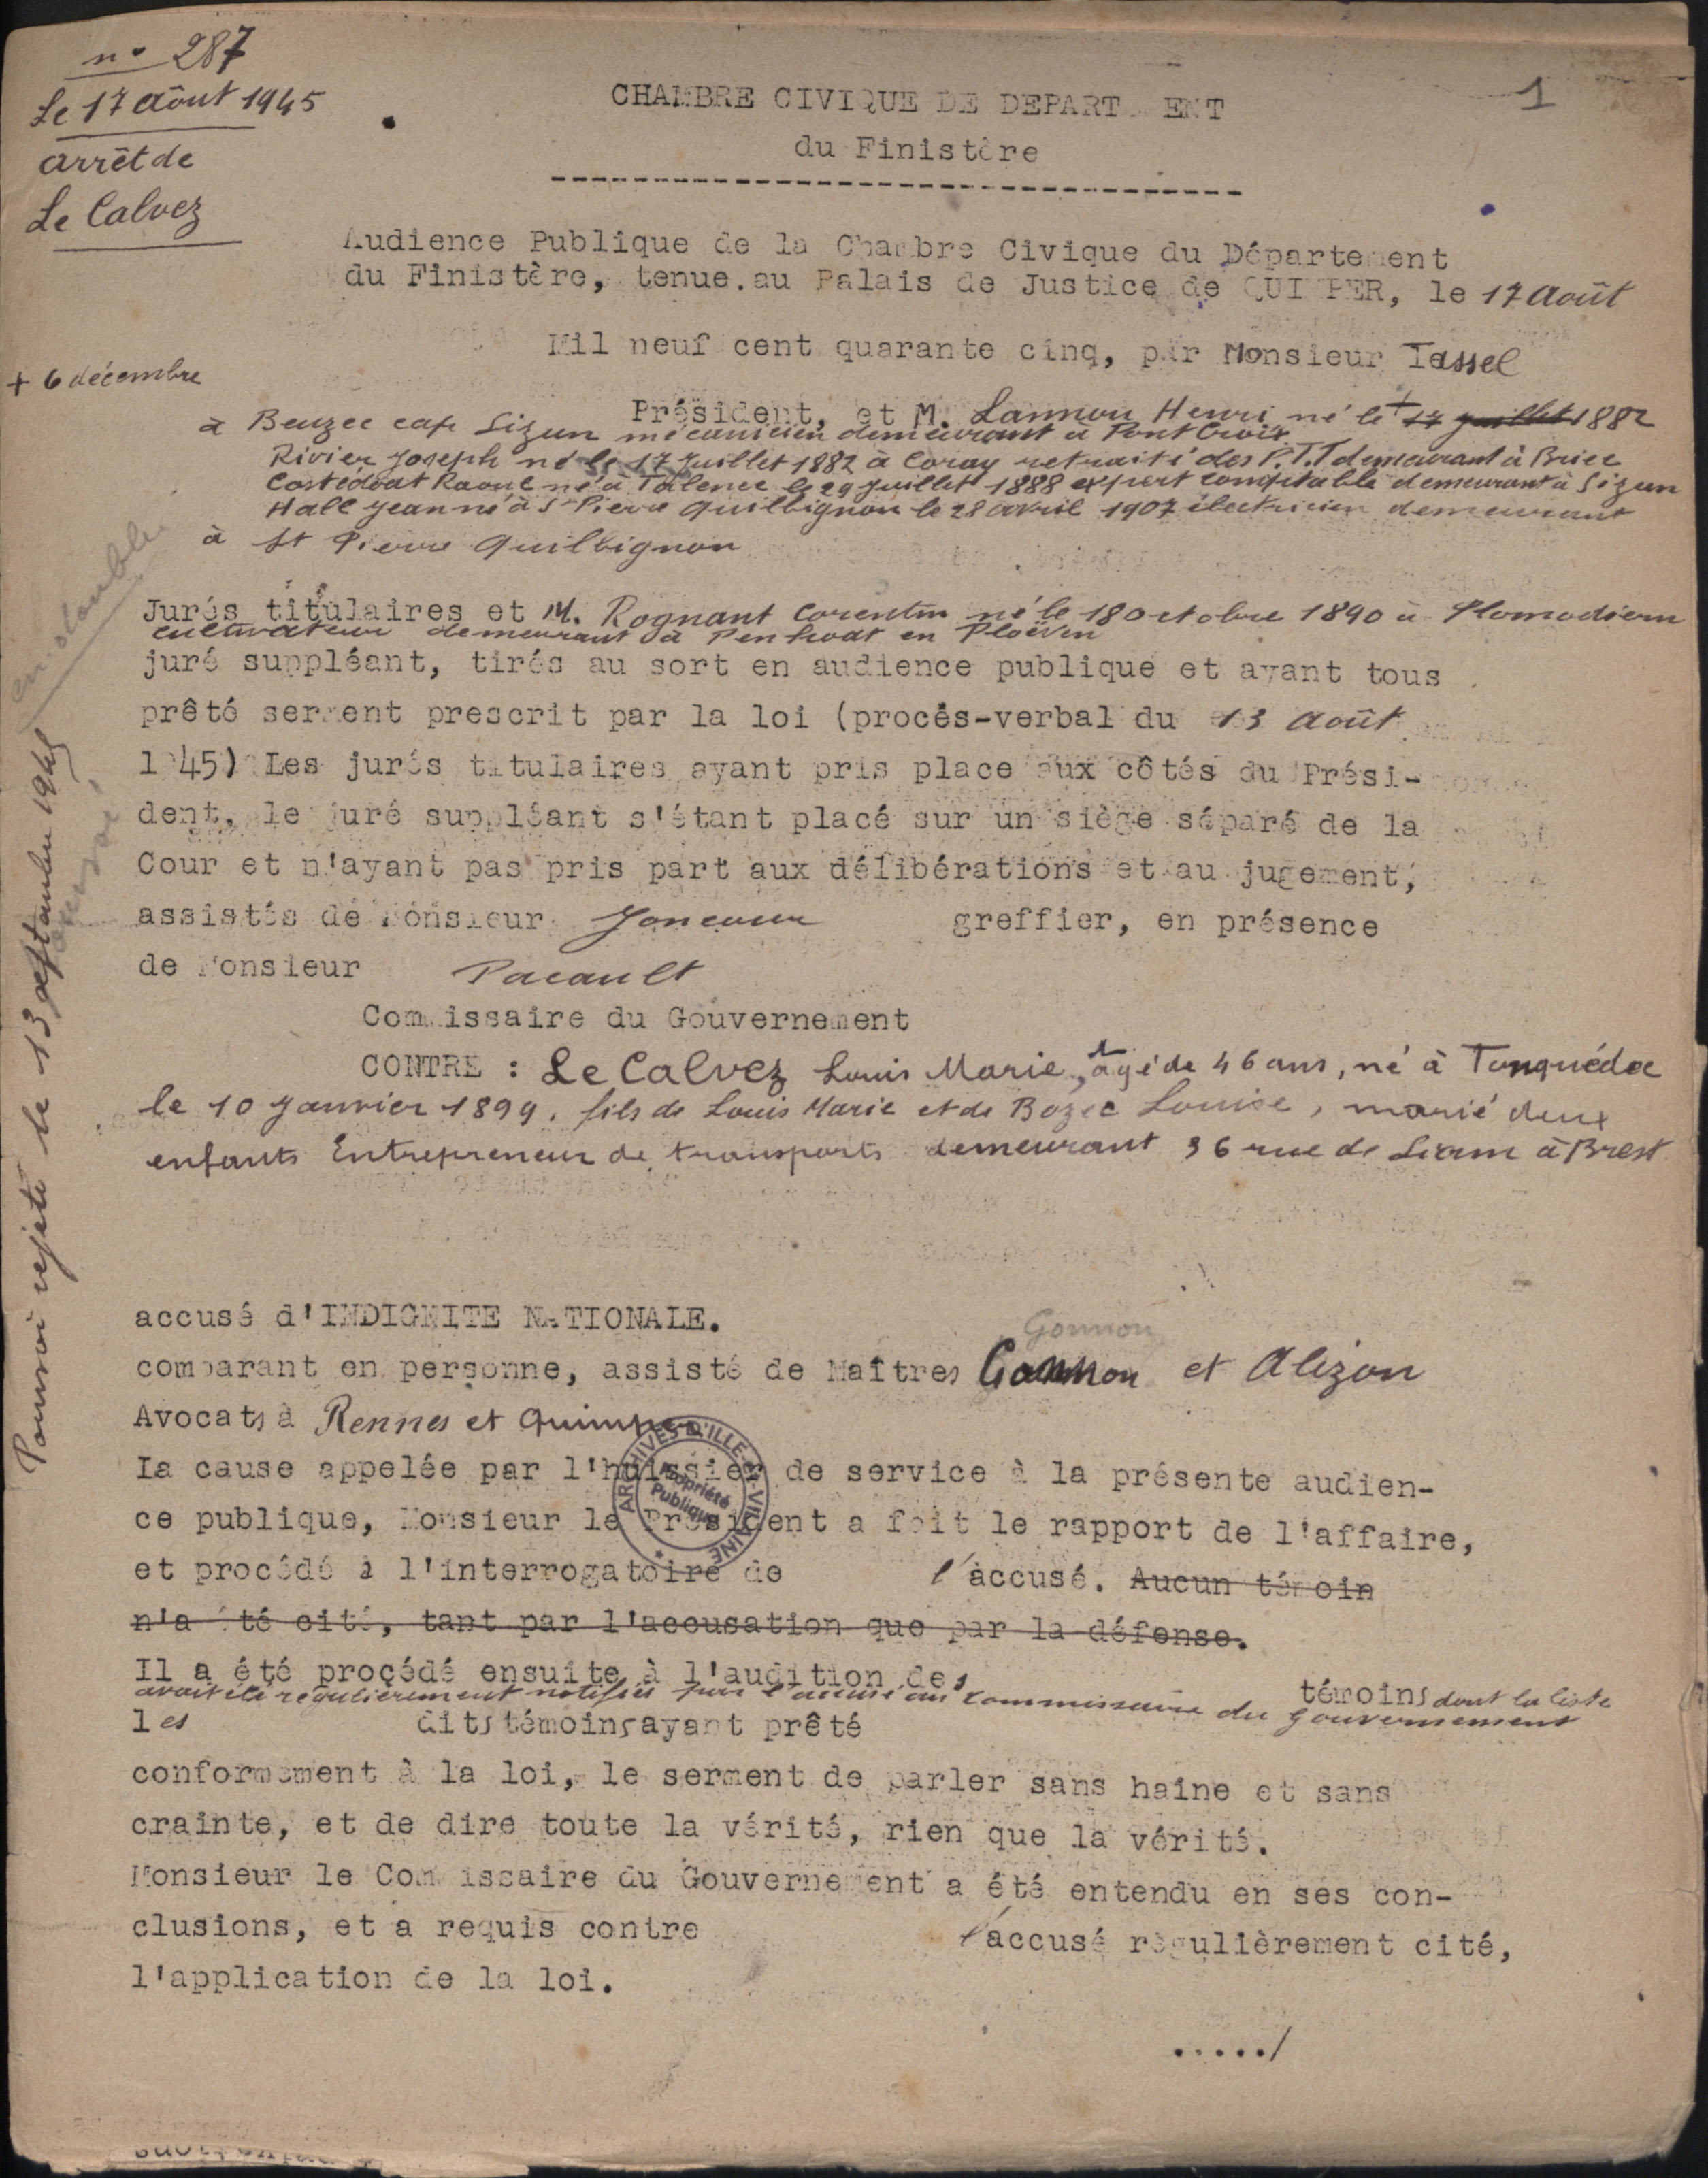 n° 287
Le 17 août 1945
arrêt de
Le Calvez
1
CHAMBRE CIVIQUE DE DEPARTEMENT
du Finistère
Audience Publique de la Chambre Civique du Département
du Finistère, tenue au Palais de Justice de QUIMPER, le 17 Août
Mil neuf cent quarante cinq, par Monsieur Tassel
+ 6 décembre
Président, et M. Lannou Henri né le + 17 juillet 1882
à Beuzec cap Sizun mécanicien demeurant à Pont Croix
Rivier Joseph né le 17 Juillet 1882 à Coray retraité des P.T.T demeurant à Briec
Castédoat Raoul né à Talence le 29 Juillet 1888 expert comptable demeurant à Sizun
Hall Jean né à St Pierre Quilbignon le 28 avril 1907 électricien demeurant
à St Pierre Quilbignon
Jurés titulaires et M. Rognant Corentin né le 18 octobre 1890 à Plomodiern
cultivateur demeurant à Penhoat en Ploéven
juré suppléant, tirés au sort en audience publique et ayant tous
prêté serment prescrit par la loi (procès-verbal du 13 Août
1945) Les jurés titulaires ayant pris place aux côtés du Prési-
dent, le juré suppléant s'étant placé sur un siège séparé de la
Cour et n'ayant pas pris part aux délibérations et au jugement,
assistés de Monsieur Joncour greffier, en présence
de Monsieur Pacault
Commissaire du Gouvernement
CONTRE : Le Calvez Louis Marie, âgé de 46 ans, né à Tonquédec
le 10 Janvier 1899, fils de Louis Marie et de Bozec Louise, marié deux
enfants Entrepreneur de transports demeurant 36 rue de Siam à Brest
accusé d'INDIGNITE NATIONALE.
Gonnon
comparant en personne, assisté de Maîtres Gonnon et Alizon
Avocats à Rennes et Quimper
La cause appelée par l'huissier de service à la présente audien-
ce publique, Monsieur le Président a fait le rapport de l'affaire,
et procédé à l'interrogatoire de l'accusé. Aucun témoin
n'a été cité, tant par l'accusation que par la défense.
Il a été procédé ensuite à l'audition des témoins dont la liste
avait été régulièrement notifiée par l'accusé au commissaire du gouvernement
les dits témoins ayant prêté
conformément à la loi, le serment de parler sans haine et sans
crainte, et de dire toute la vérité, rien que la vérité.
Monsieur le Commissaire du Gouvernement a été entendu en ses con-
clusions, et a requis contre l'accusé régulièrement cité,
l'application de la loi.
...../
Pourvoi rejeté le 13 septembre 1945
en double
ARCHIVES D'ILLE-ET-VILAINE
Propriété
Publique